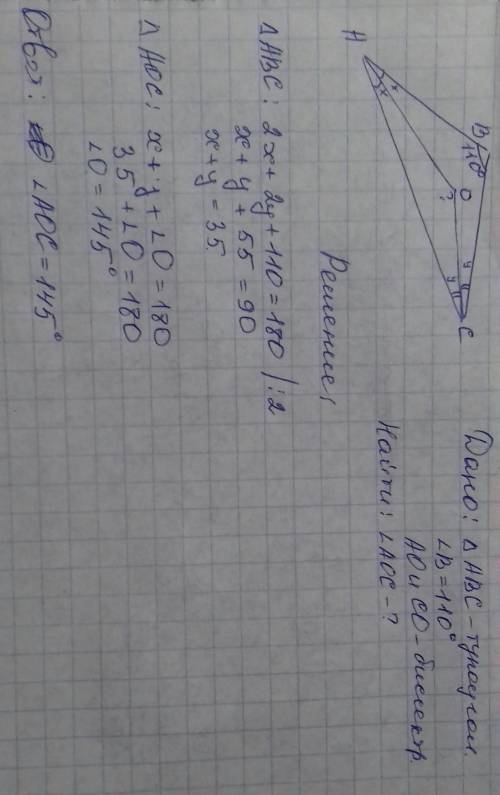 A
B
110°
O
?
x
x
y
y
C
Дано: △ ABC - тупоугол.
∠B = 110°
AO и CO - биссектр.
Найти: ∠AOC - ?
Решение:
△ ABC: 2x + 2y + 110 = 180 / :2
x + y + 55 = 90
x + y = 35
△ AOC: x + y + ∠O = 180
35° + ∠O = 180
∠O = 145°
Ответ: ∠AOC = 145°